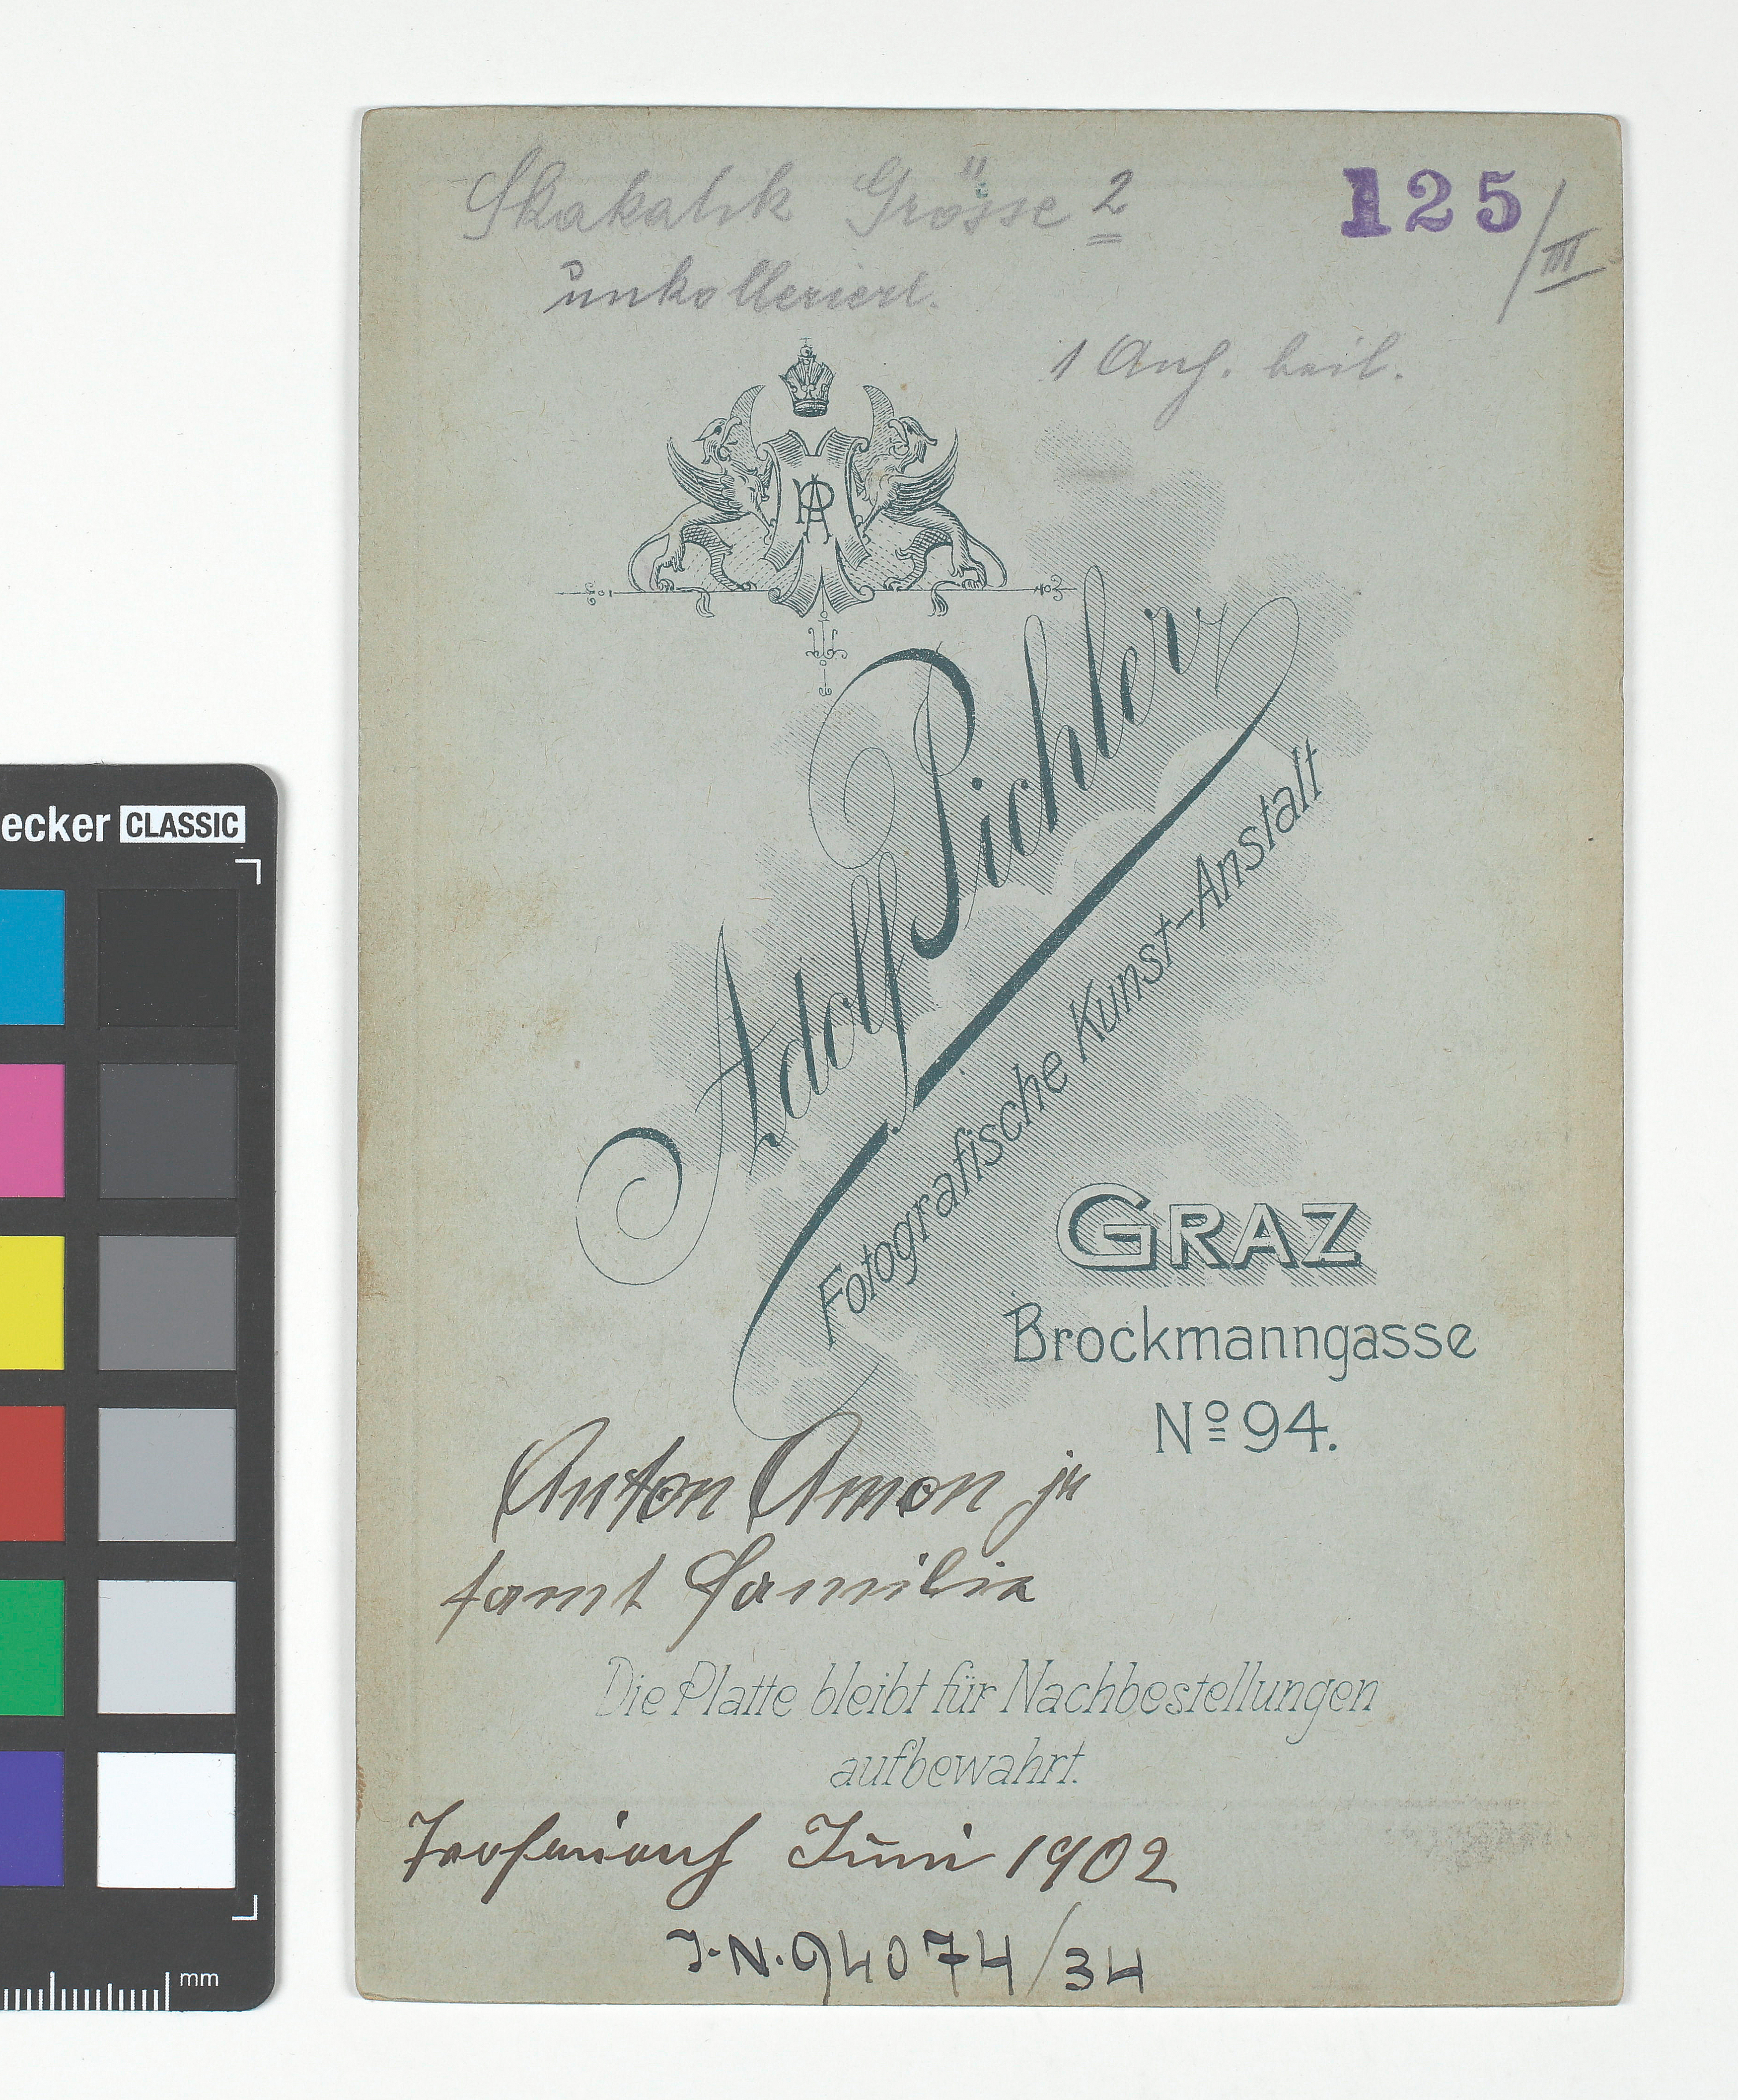 Skakalik Grösse 2
125/III
unkolleriert.
1 Auf. beil.
AP
Adolf Pichler
Fotografische Kunst-Anstalt
GRAZ
Brockmanngasse
Nº 94.
Anton Amon jr
samt Familie
Die Platte bleibt für Nachbestellungen
aufbewahrt.
Trofaiach Juni 1902
J.N. 94074/34
ecker CLASSIC
mm